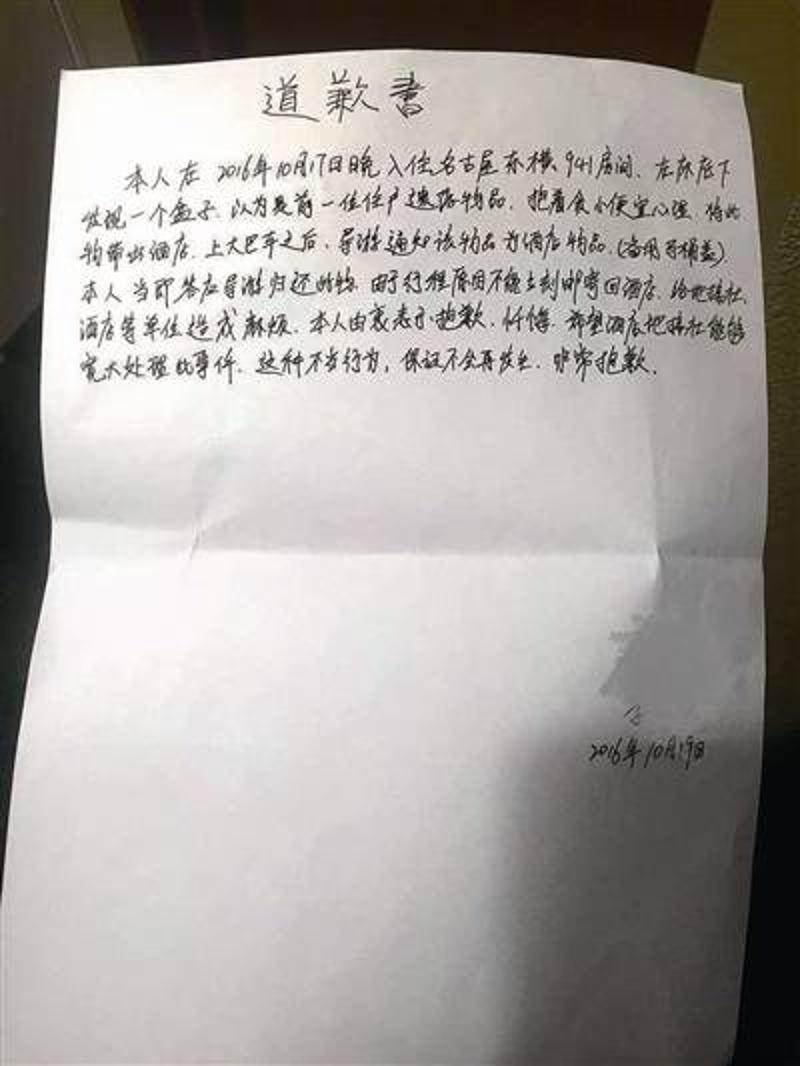 道歉书
本人在 2016年10月17日晚入住名古屋东横 941房间、在床底下
发现一个盒子、以为是前一位住户遗落物品、抱着贪小便宜心理、将此
物带出酒店、上大巴车之后、导游通知该物品为酒店物品、(备用马桶盖)
本人当即答应导游归还此物、由于行程原因不能立刻邮寄回酒店、给地接社、
酒店等单位造成麻烦、本人由衷表示抱歉、忏悔、希望酒店地接社能够
宽大处理此事件、这种不当行为, 保证不会再发生、非常抱歉.
2016年10月19日